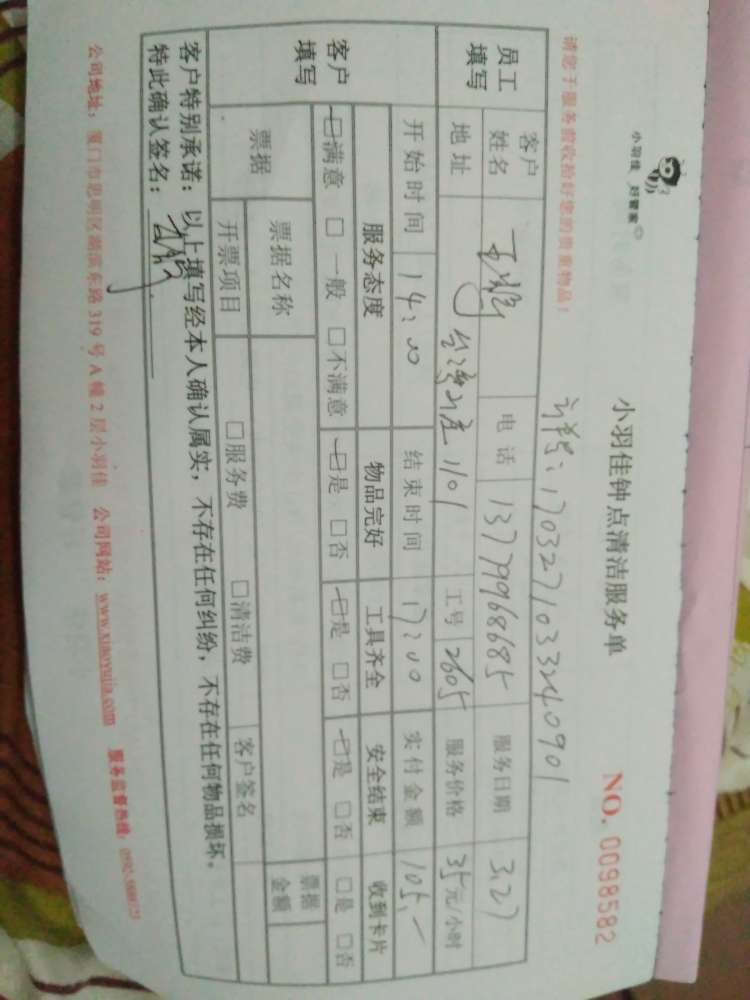 小羽佳 好管家
小羽佳钟点清洁服务单 NO. 0098582
请您于服务前收拾好您的贵重物品!
1703271033240901
员工填写 客户姓名 电话 13779968685 服务日期 3.27
地址 1101 工号 2605 服务价格 35元/小时
开始时间 14:00 结束时间 17:00 实付金额 105.—
客户填写 服务态度 物品完好 工具齐全 安全结束 收到卡片
☑满意 □一般 □不满意 ☑是 □否 ☑是 □否 ☑是 □否 □是 □否
票据 票据名称 票据金额
开票项目 □服务费 □清洁费 客户签名
客户特别承诺:以上填写经本人确认属实,不存在任何纠纷,不存在任何物品损坏。
特此确认签名:
公司地址:厦门市思明区湖滨东路319号A幢2层小羽佳 公司网站:www.xiaoyujia.com 服务监督热线: